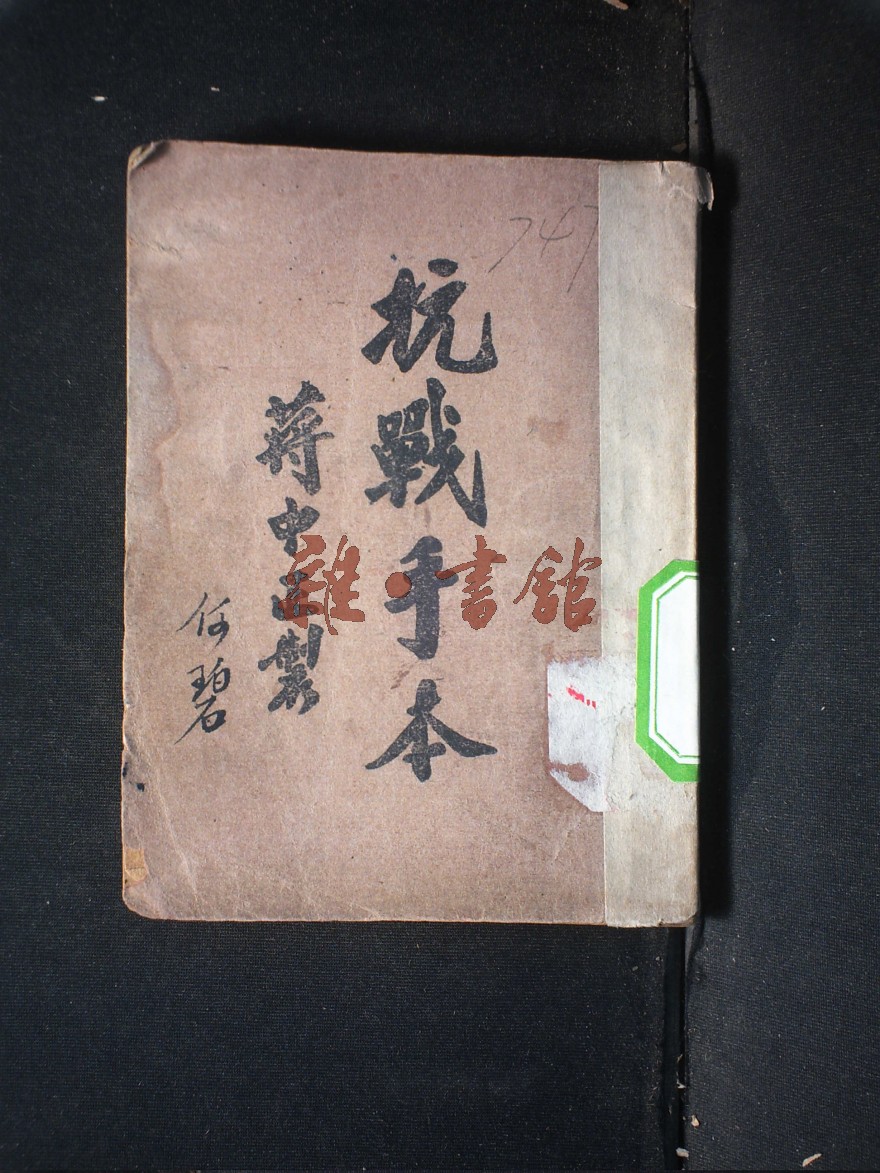 747
抗戰手本
蔣中正製
何碧
雜·書館